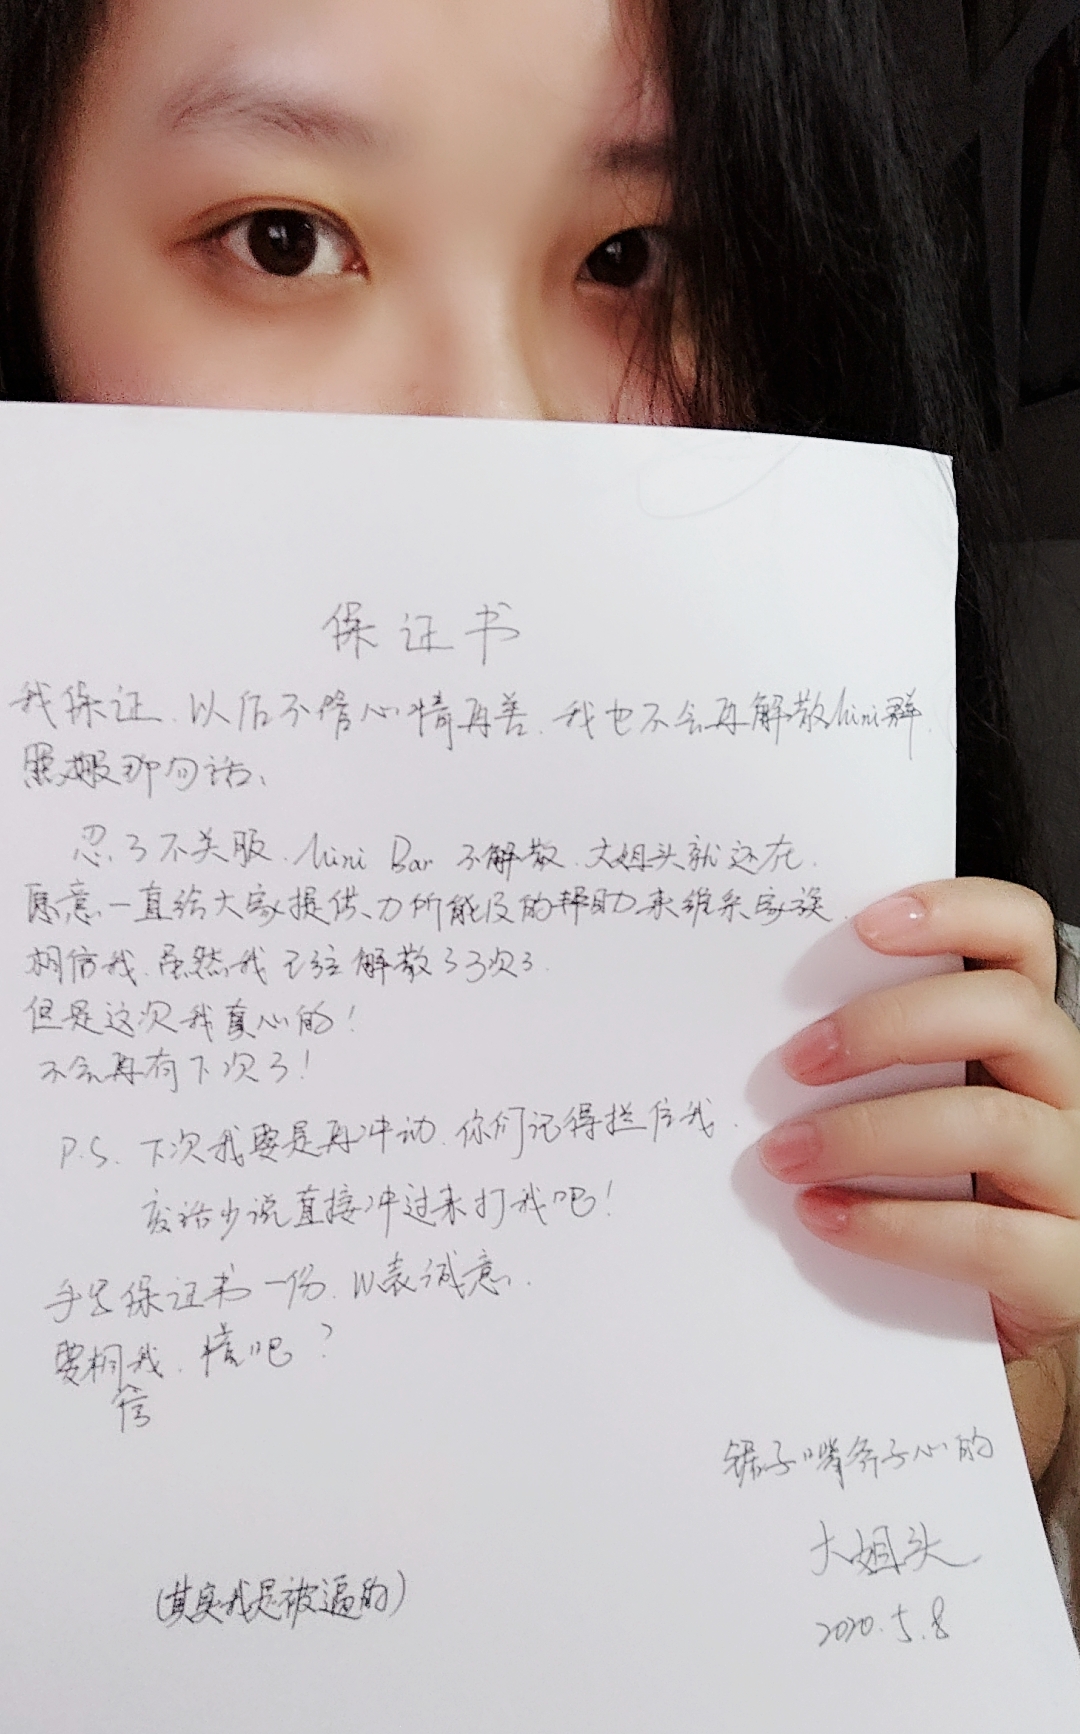 保证书
我保证、以后不管心情再差、我也不会再解散Mini群、
照娜那句话、
忍了不关服、Mini Bar 不解散、大姐头就还在、
愿意一直给大家提供、力所能及的帮助、来维系家族、
相信我、虽然我已经解散了3次了、
但是这次我真心的!
不会再有下次了!
P.S. 下次我要是再冲动、你们记得拦住我、
废话少说直接冲过来打我吧!
手写保证书一份、以表诚意、
要相信我、情吧?
锯子嘴斧子心的
大姐头
2020.5.8
(其实我是被逼的)